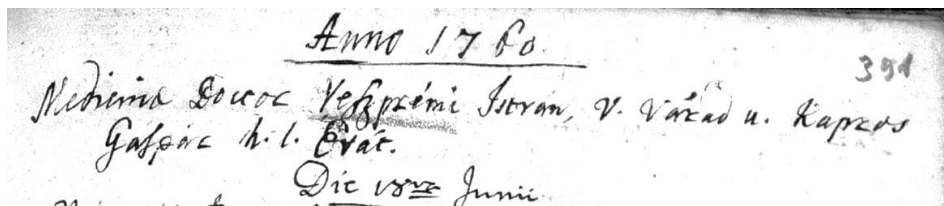 Anno 1760.
391
Medicinæ Doctor Veszprémi István, V. Várad u. Kapros
Gáspár h. l.
Die 18va Junii